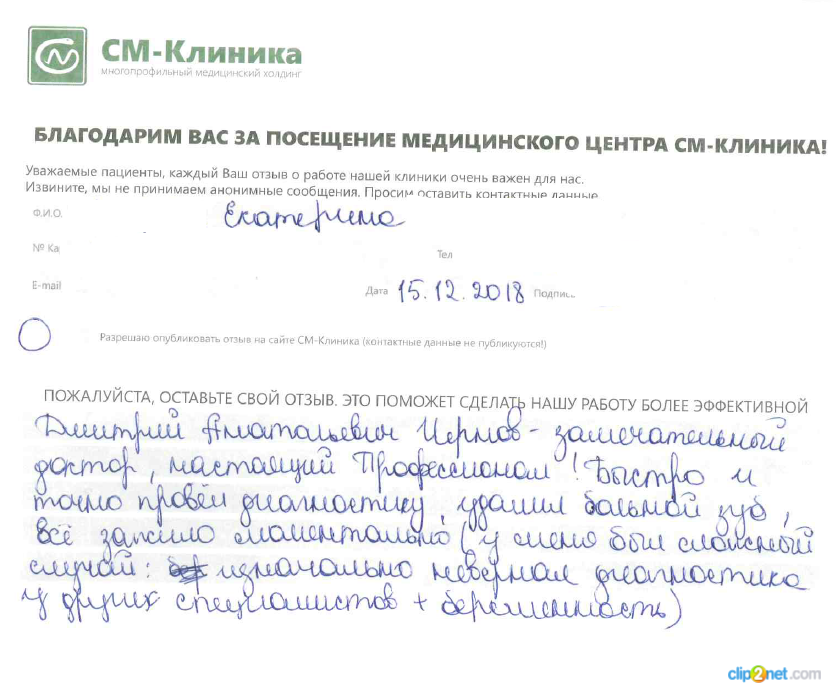 СМ-Клиника
многопрофильный медицинский холдинг
БЛАГОДАРИМ ВАС ЗА ПОСЕЩЕНИЕ МЕДИЦИНСКОГО ЦЕНТРА СМ-КЛИНИКА!
Уважаемые пациенты, каждый Ваш отзыв о работе нашей клиники очень важен для нас.
Извините, мы не принимаем анонимные сообщения. Просим оставить контактные данные
Ф.И.О. Екатерина
№ Ка
Тел
E-mail Дата 15.12.2018 Подпис..
Разрешаю опубликовать отзыв на сайте СМ-Клиника (контактные данные не публикуются!)
ПОЖАЛУЙСТА, ОСТАВЬТЕ СВОЙ ОТЗЫВ. ЭТО ПОМОЖЕТ СДЕЛАТЬ НАШУ РАБОТУ БОЛЕЕ ЭФФЕКТИВНОЙ
Дмитрий Анатольевич - замечательный
доктор, настоящий Профессионал! Быстро и
точно провёл диагностику, удалил больной зуб,
всё зажило моментально (у меня был сложный
случай: изначально неверная диагностика
у других специалистов + беременность)
clip2net.com